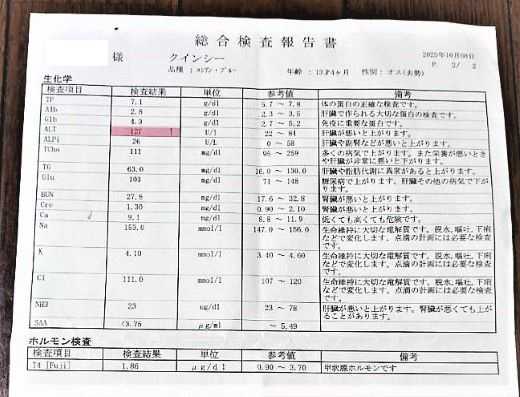 総合検査報告書
2025年10月08日
様 クインシー P. 2/ 2
品種：ロシアン・ブルー 年齢：13才4ヶ月 性別：オス(去勢)
生化学
検査項目 検査結果 単位 参考値 備考
TP 7.1 g/dl 5.7 ～ 7.8 体の蛋白の正確な検査です。
Alb 2.8 g/dl 2.3 ～ 3.5 肝臓で作られる大切な蛋白の検査です。
Glb 4.3 g/dl 2.7 ～ 5.2 免疫に重要な蛋白です。
ALT ↑ U/l 22 ～ 84 肝臓が悪いと上がります。
ALPi 26 U/l 0 ～ 58 肝臓や副腎などが悪いと上がります。
TCho 111 mg/dl 95 ～ 259 多くの病気で上がります。また栄養が悪いときや肝臓が非常に悪いと下がります。
TG 63.0 mg/dl 16.0 ～ 130.0 肝臓や脂肪代謝に異常があると上がります。
Glu 103 mg/dl 71 ～ 148 糖尿病で上がります。肝臓その他の病気で下がります。
BUN 27.8 mg/dl 17.6 ～ 32.8 腎臓が悪いと上がります。
Cre 1.30 mg/dl 0.90 ～ 2.10 腎臓が悪いと上がります。
Ca 9.1 mg/dl 8.8 ～ 11.9 低くても高くても危険です。
Na 155.0 mmol/l 147.0 ～ 156.0 生命維持に大切な電解質です。脱水、嘔吐、下痢などで変化します。点滴の計画には必要な検査です。
K 4.10 mmol/l 3.40 ～ 4.60 生命維持に大切な電解質です。脱水、嘔吐、下痢などで変化します。点滴の計画には必要な検査です。
Cl 111.0 mmol/l 107 ～ 120 生命維持に大切な電解質です。脱水、嘔吐、下痢などで変化します。点滴の計画には必要な検査です。
NH3 23 ug/dl 23 ～ 78 肝臓が悪いと上がります。腎臓が悪くても上がることがあります。
SAA <3.75 μg/ml ～ 5.49
ホルモン検査
検査項目 検査結果 単位 参考値 備考
T4 [Fuji] 1.86 μg/dl 0.90 ～ 3.70 甲状腺ホルモンです